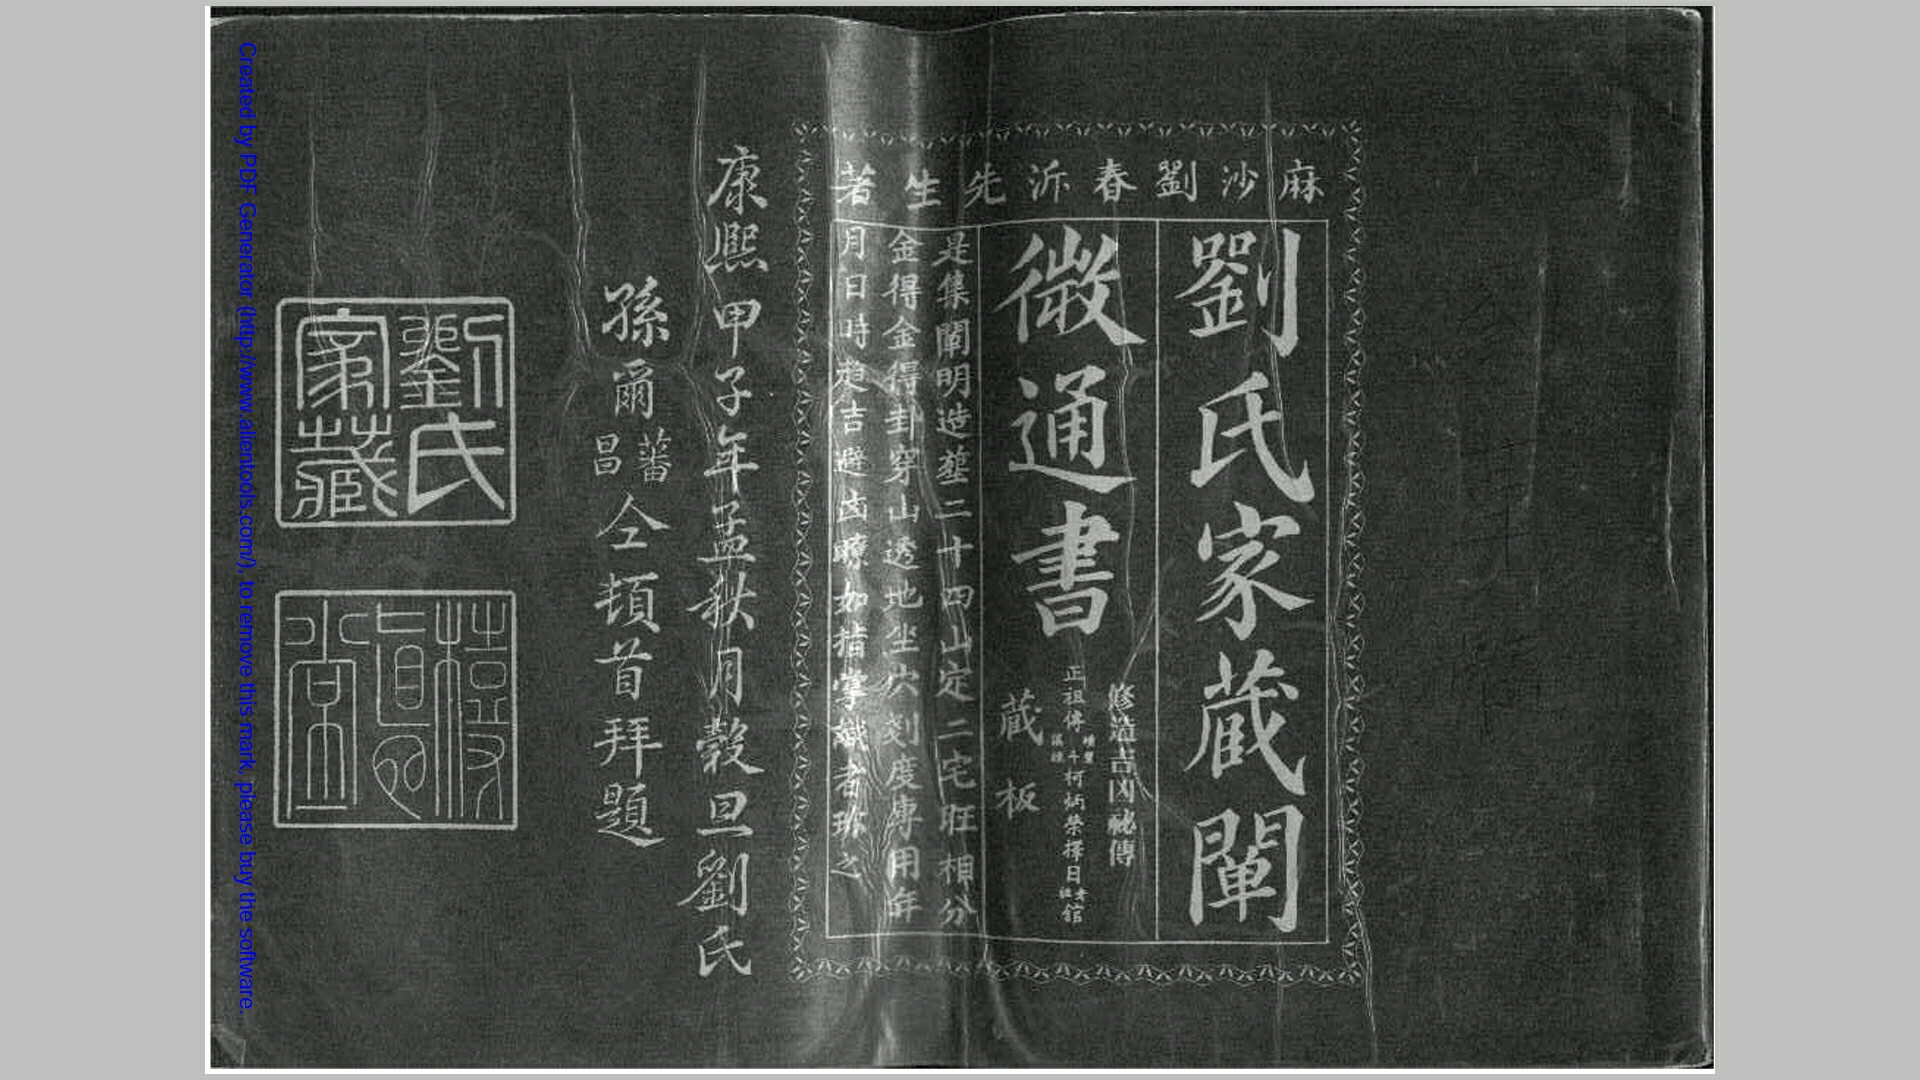 麻沙劉春沂先生著
劉氏家藏闡
微通書
修造吉凶祕傳
正祖傳
柯炳榮擇日
館
藏板
是集闡明造塟二十四山定二宅旺相分
金得金得卦穿山透地坐穴刻度專用年
月日時趋吉避凶瞭如指掌識者珍之
康熙甲子年孟秋月穀旦劉氏
孫爾蕃昌仝頓首拜題
劉氏家藏
Created by PDF Generator (http://www.alientools.com/), to remove this mark, please buy the software.